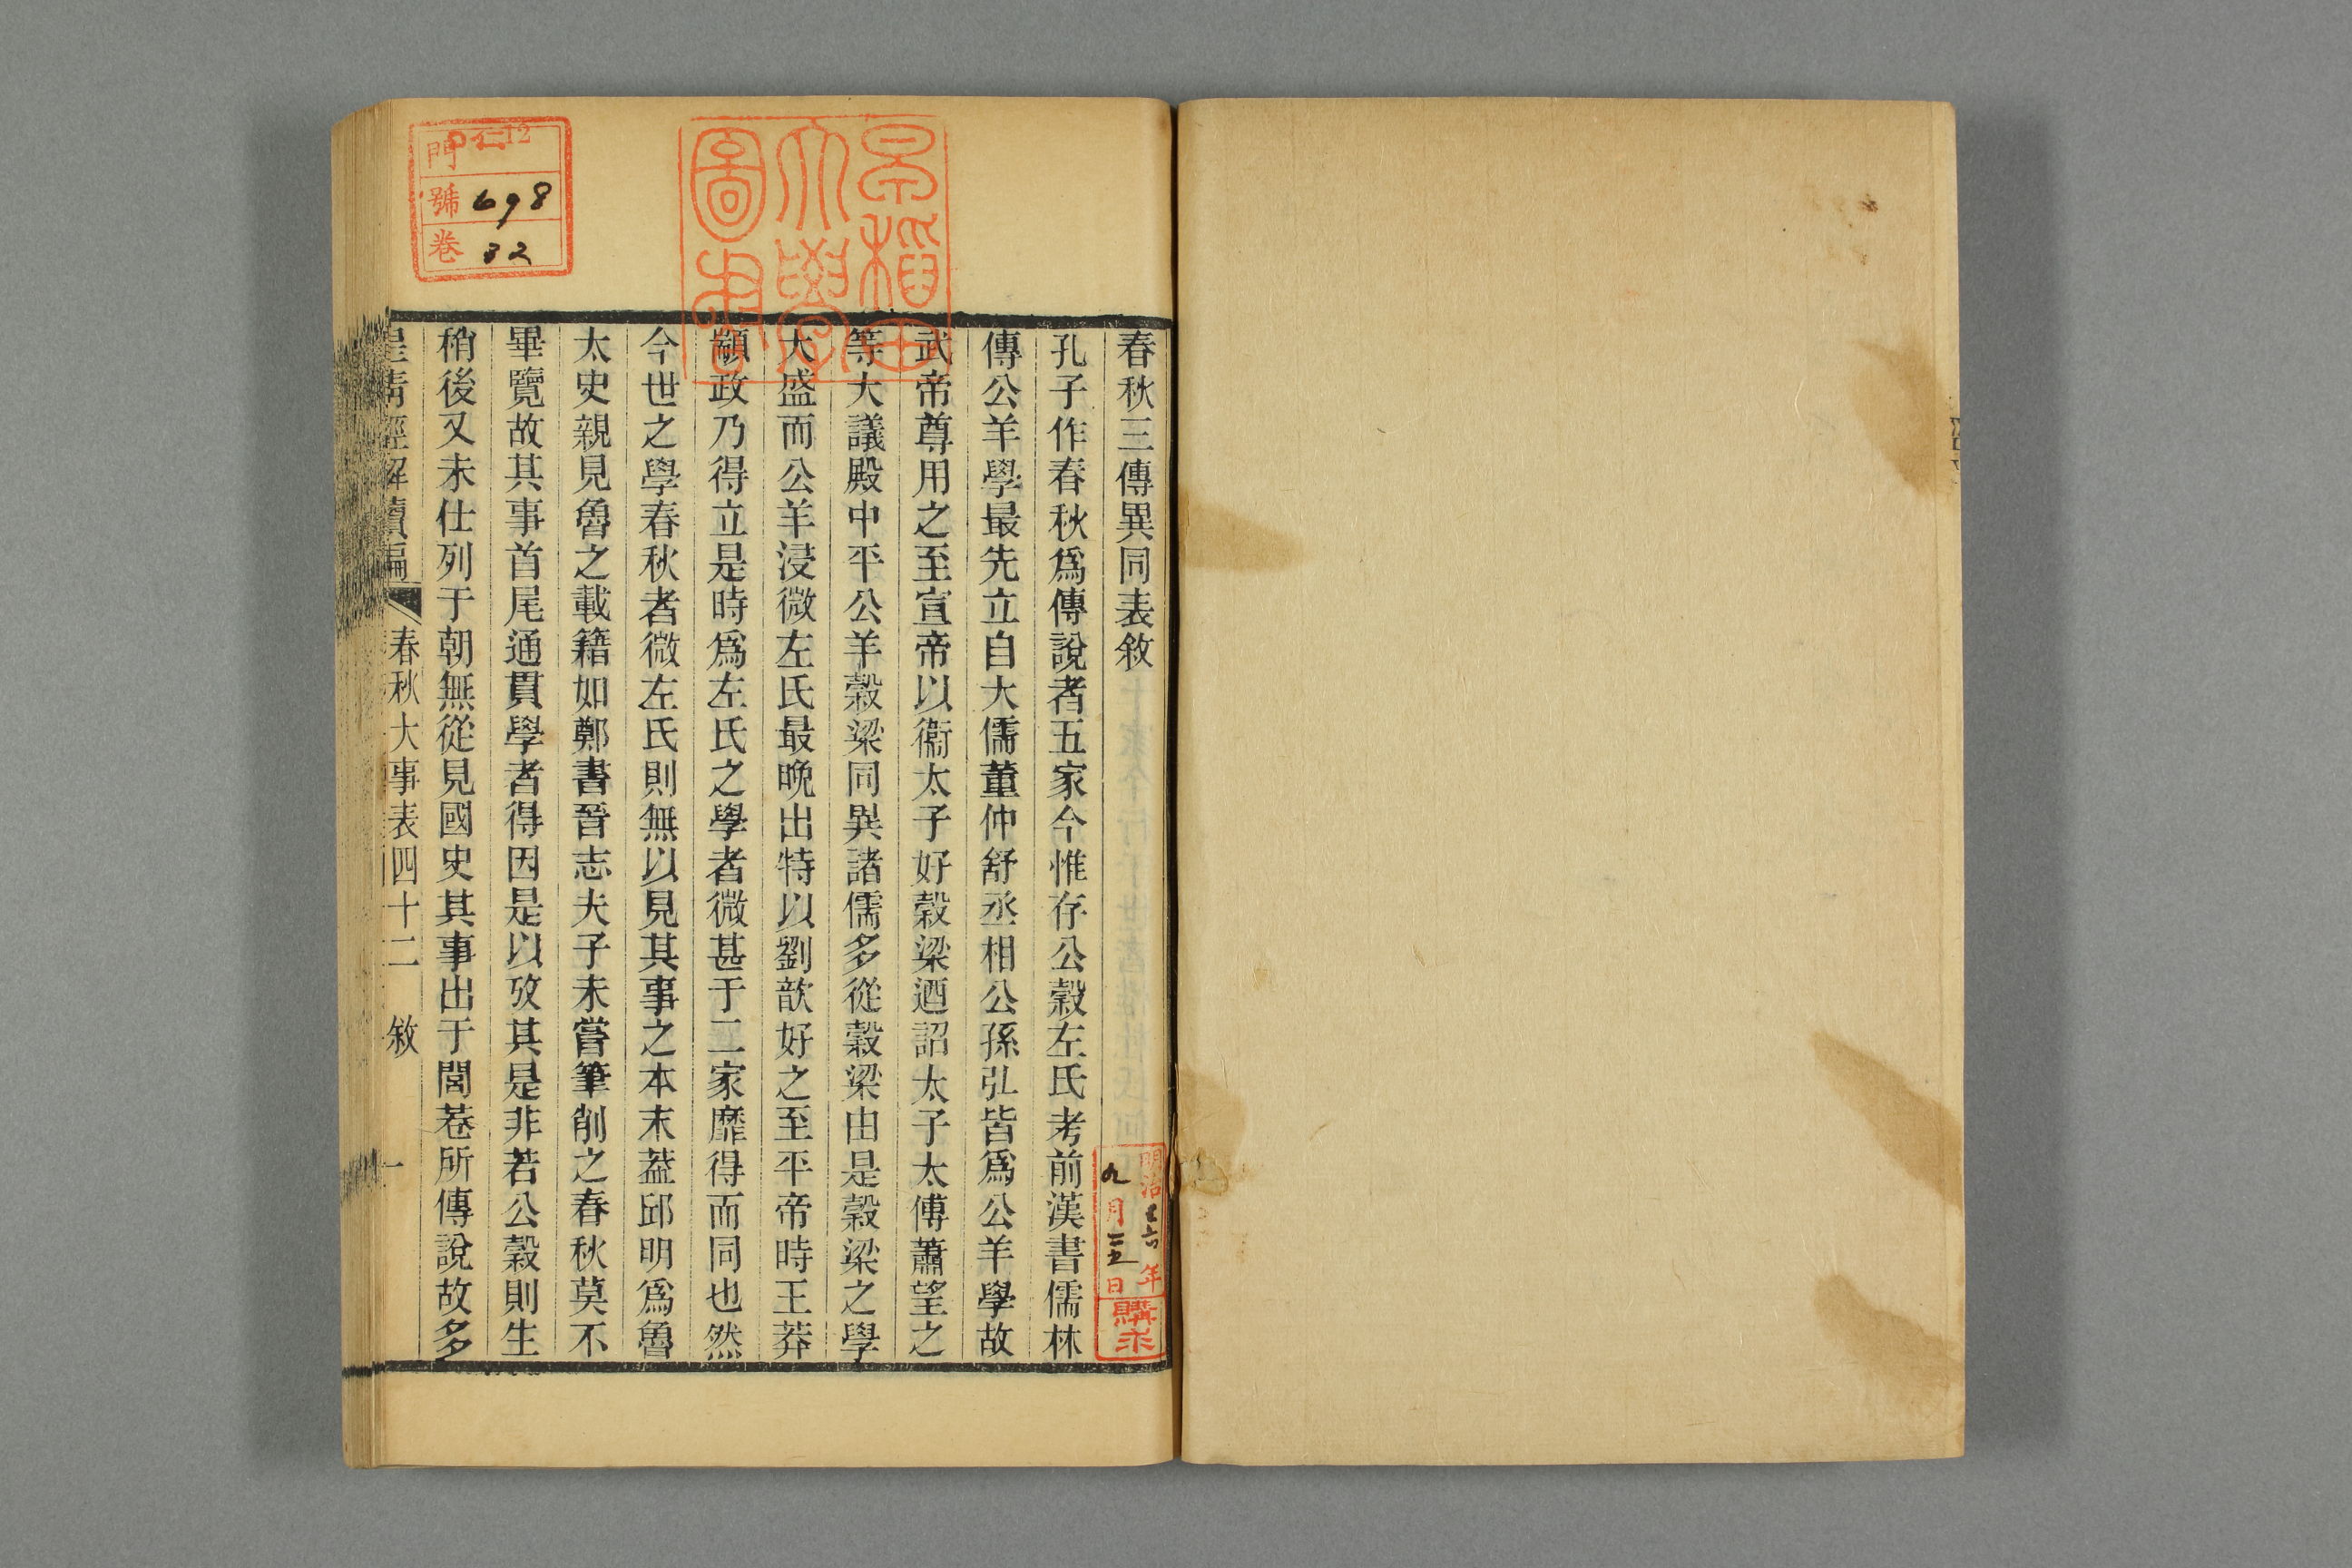 春秋三傳異同表敘
孔子作春秋爲傳說者五家今惟存公穀左氏考前漢書儒林
傳公羊學最先立自大儒董仲舒丞相公孫弘皆爲公羊學故
武帝尊用之至宣帝以衞太子好穀梁迺詔太子太傅蕭望之
等大議殿中平公羊穀梁同異諸儒多從穀梁由是穀梁之學
大盛而公羊浸微左氏最晚出特以劉歆好之至平帝時王莽
顓政乃得立是時爲左氏之學者微甚于二家靡得而同也然
今世之學春秋者微左氏則無以見其事之本末葢邱明爲魯
太史親見魯之載籍如鄭書晉志夫子未嘗筆削之春秋莫不
畢覽故其事首尾通貫學者得因是以攷其是非若公穀則生
稍後又未仕列于朝無從見國史其事出于閭巷所傳說故多
皇清經解續編
春秋大事表四十二 敘
一
早稻田
大學
圖書
門 12
號 698
卷 32
明治 年
九月二五日
購求